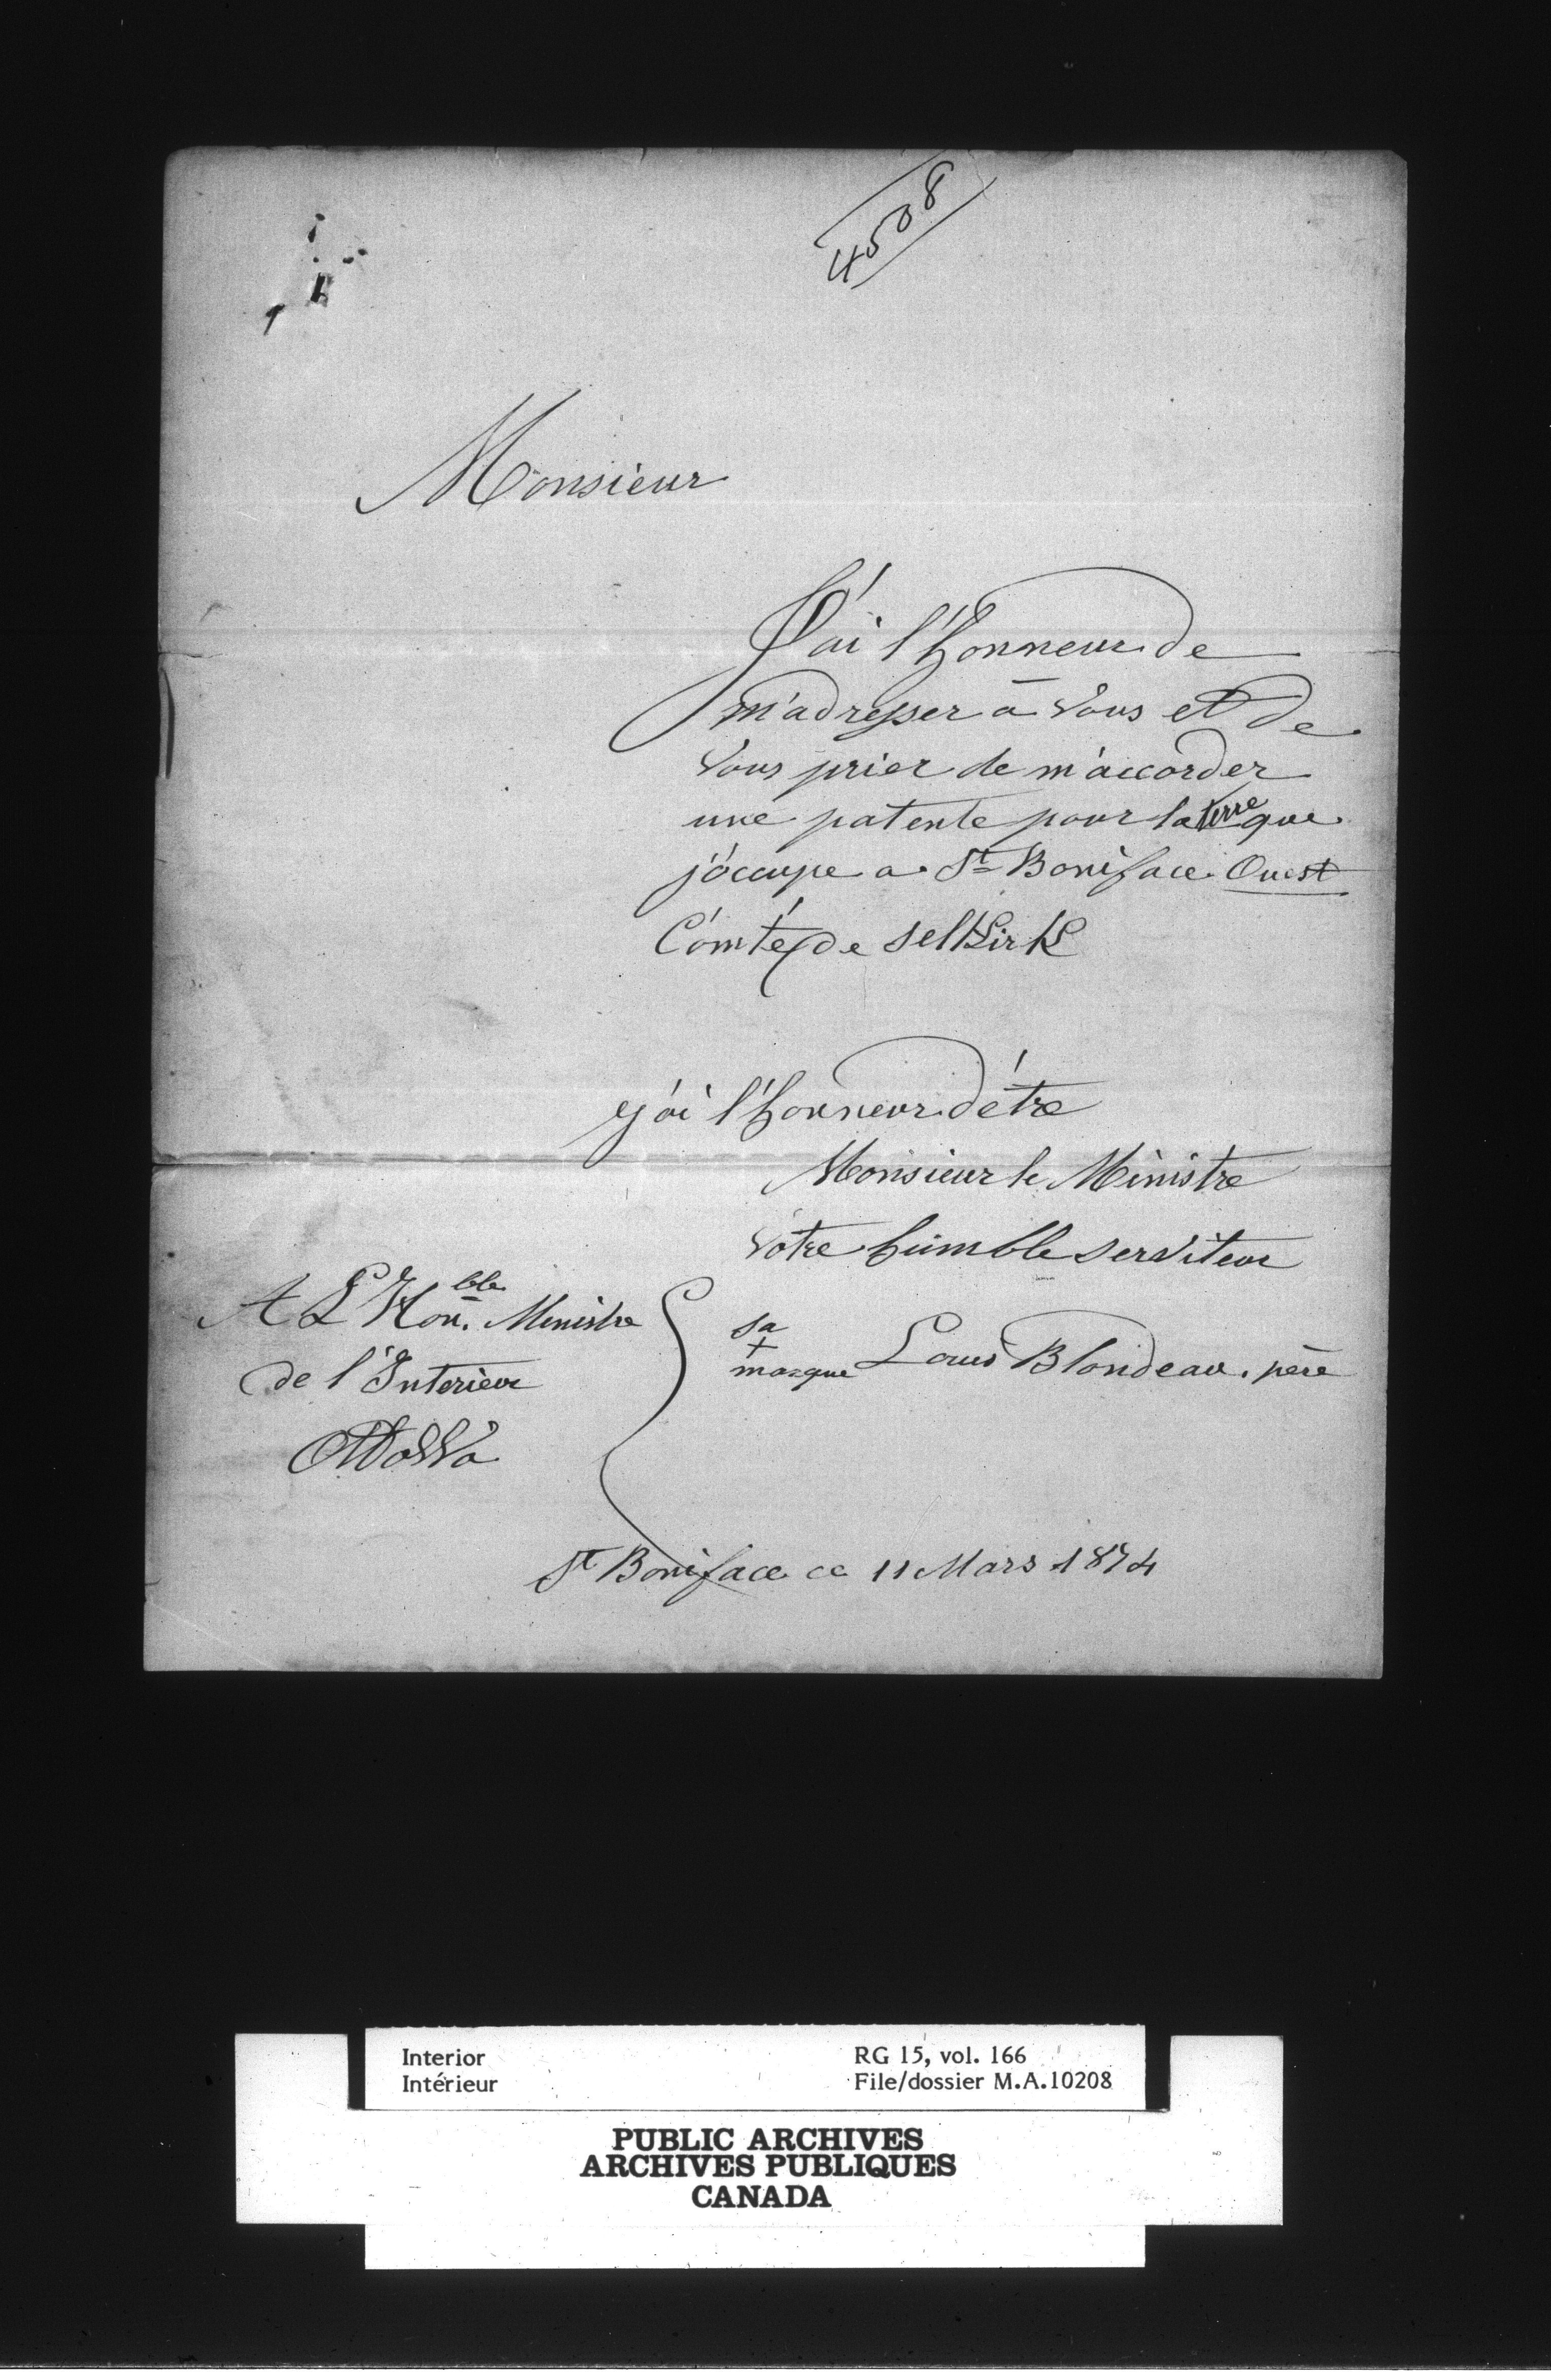 4508
Monsieur
J'ai l'honneur de
m'adresser a vous et de
vous prier de m'accorder
une patente pour la terre que
j'occupe a St Boniface Ouest
Comté de Selkirk
j'ai l'honneur d'étre
Monsieur le Ministre
votre humble serviteur
A L'Hon.ble Ministre
de l'Interieur
Ottawa
sa
+
marque Louis Blondeau. père
St Boniface ce 11 Mars 1874
Interior
Intérieur
RG 15, vol. 166
File/dossier M.A.10208
PUBLIC ARCHIVES
ARCHIVES PUBLIQUES
CANADA